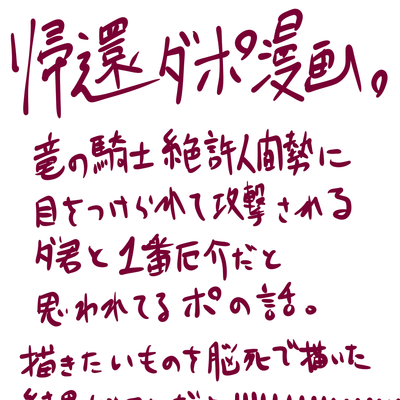 帰還ダポ漫画。
竜の騎士絶許人間勢に
目をつけられて攻撃される
ダ君と1番厄介だと
思われてるポの話。
描きたいものを脳死で描いた